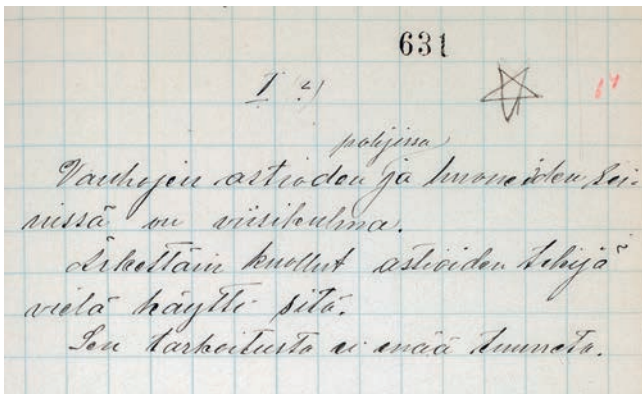 631
I 2)
67
pohjissa
Vanhojen astioden ja huoneiden sei-
nissä on viisikulma.
Äskettäin kuollut astioiden tekijä
vielä käytti sitä.
Sen tarkoitusta ei enää tunneta.